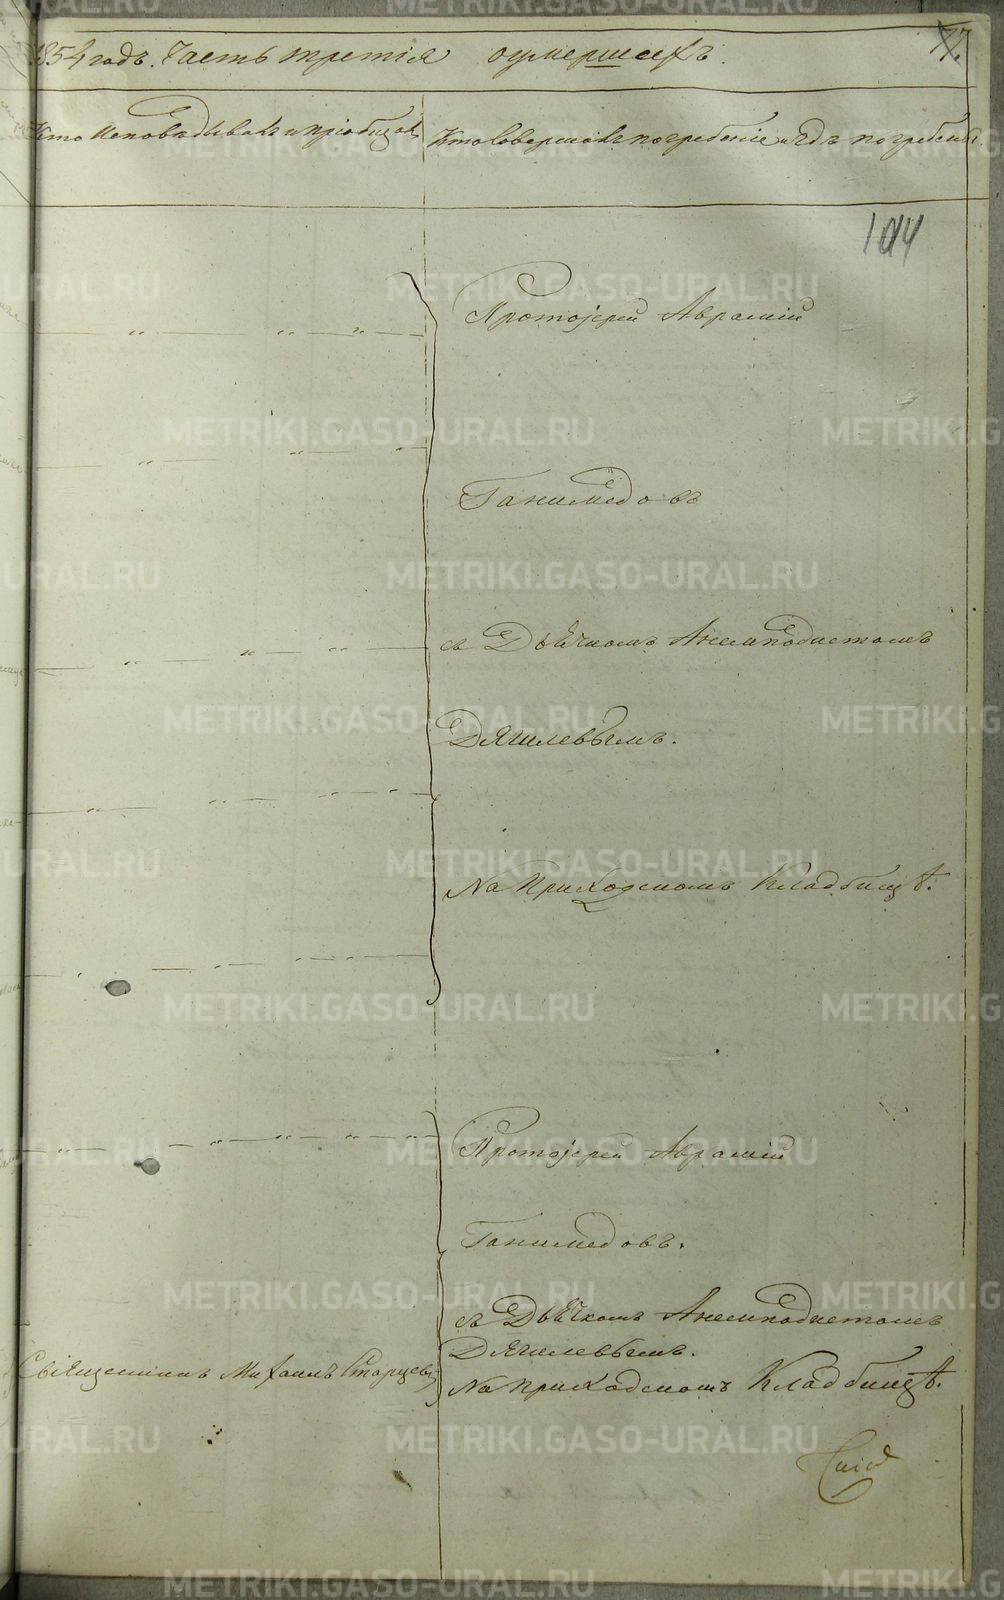 1854 годъ. Часть третія о умершихъ.
77.
Кто Исповѣдывалъ и пріобщалъ
Кто Совершалъ погребеніе и гдѣ погребены.
104
Протоіерей Аврамій
Ганимедовъ
съ Дьячкомъ Анемподистомъ
Дягилевымъ.
На приходскомъ Кладбищѣ.
Протоіерей Аврамій
Ганимедовъ.
съ Дьячкомъ Анемподистомъ
Дягилевымъ.
Священникъ Михаилъ Старцевъ
На приходскомъ Кладбищѣ.
METRIKI.GASO-URAL.RU